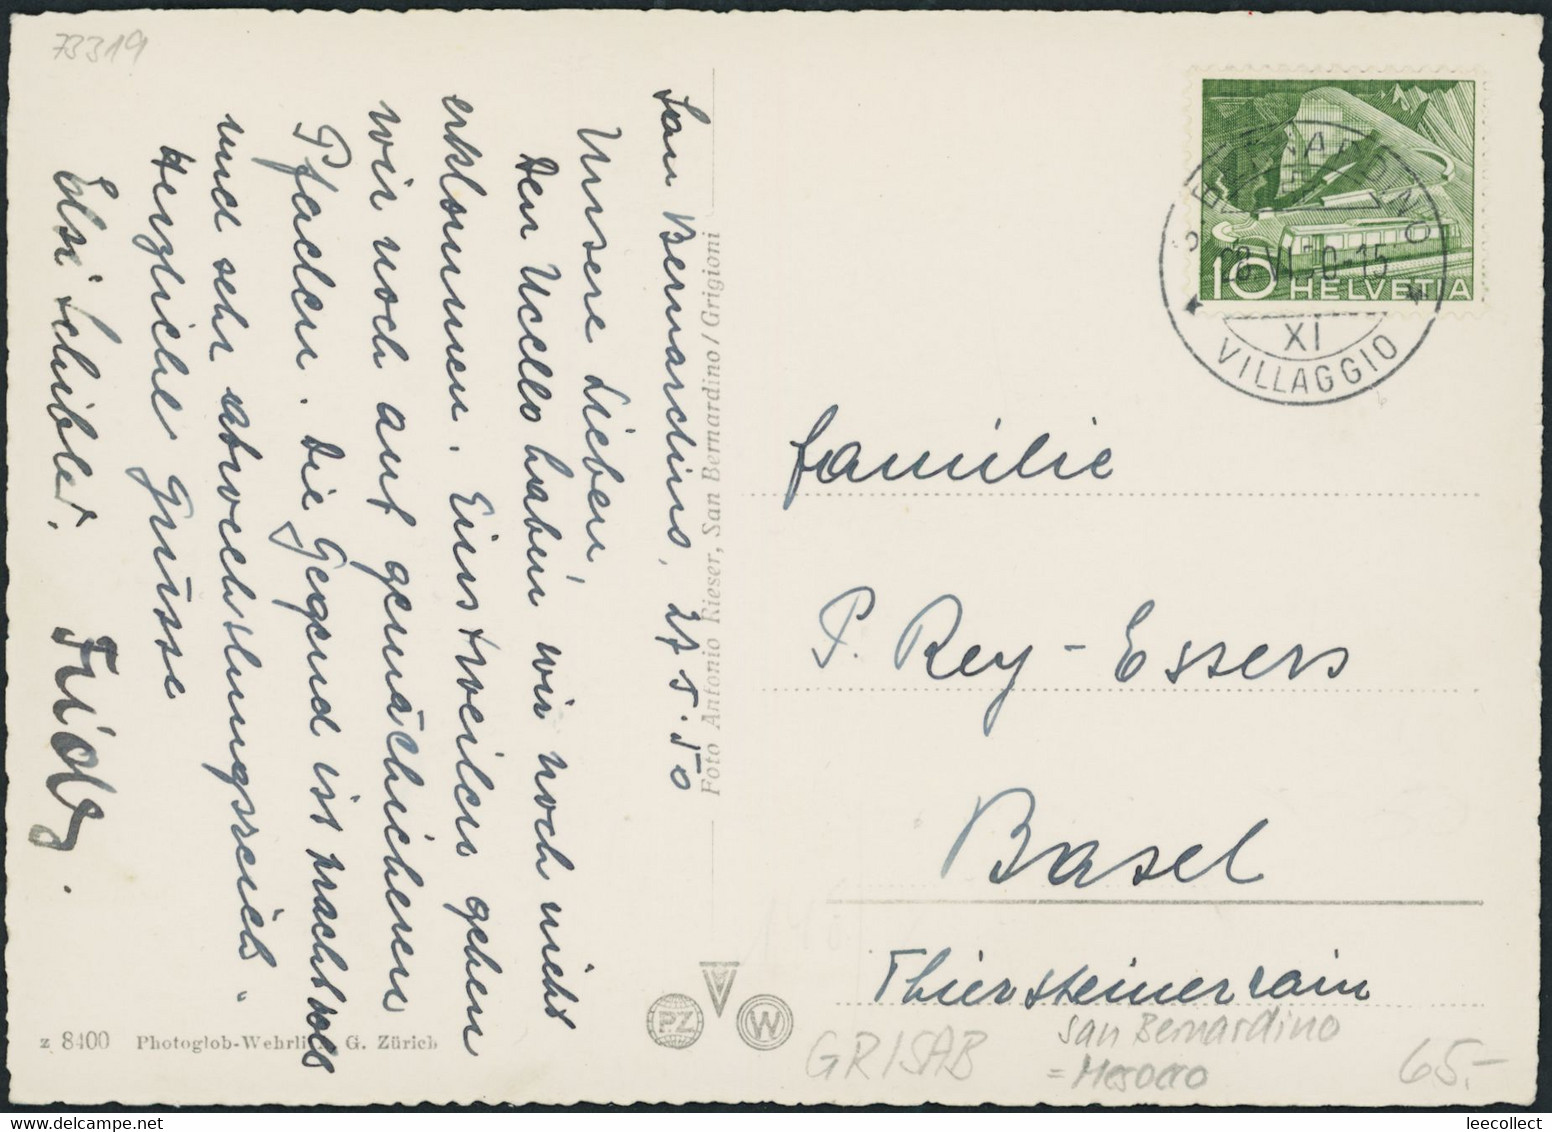 73319
San Bernardino, 27.5.50
Unsere Lieben,
Den Ucello haben wir noch nicht
erklommen. Einstweilen gehen
wir noch auf gemächlicheren
Pfaden. Die Gegend ist prachtvoll
und sehr abwechslungsreich.
Herzliche Grüsse
Elsi Schiblet. Fridy.
Foto Antonio Rieser, San Bernardino/Grigioni
z 8400 Photoglob-Wehrli A. G. Zürich
PZ V W
S. BERNARDINO
-15
XI
VILLAGGIO
10 HELVETIA
Familie
P. Rey-Essers
Basel
Thiersteinerrain
GRISAB
San Bernardino
= Mesocco
65.-
leecollect